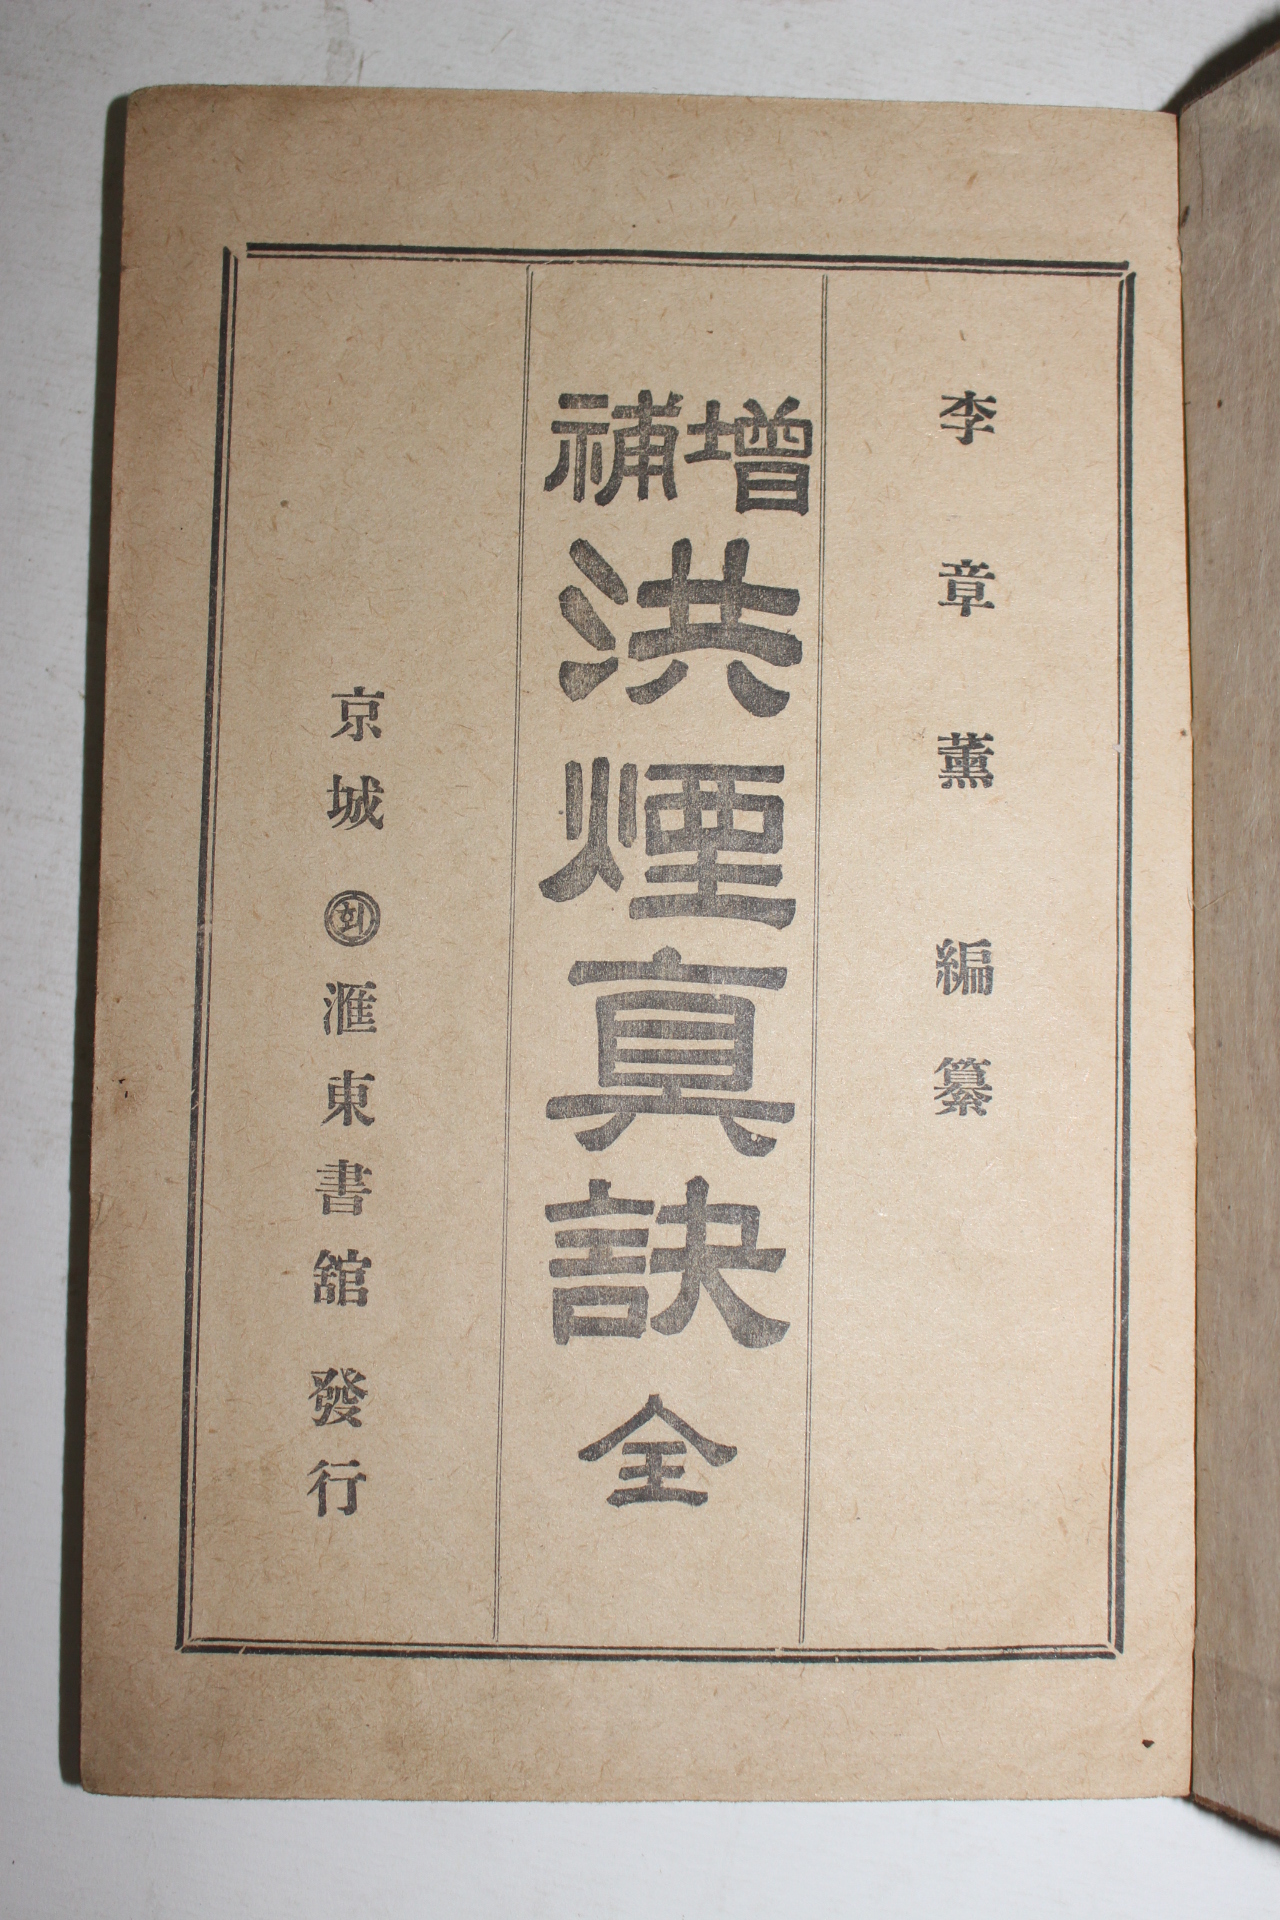 李章薰編纂
增補洪煙真訣全
京城㊞회滙東書舘發行